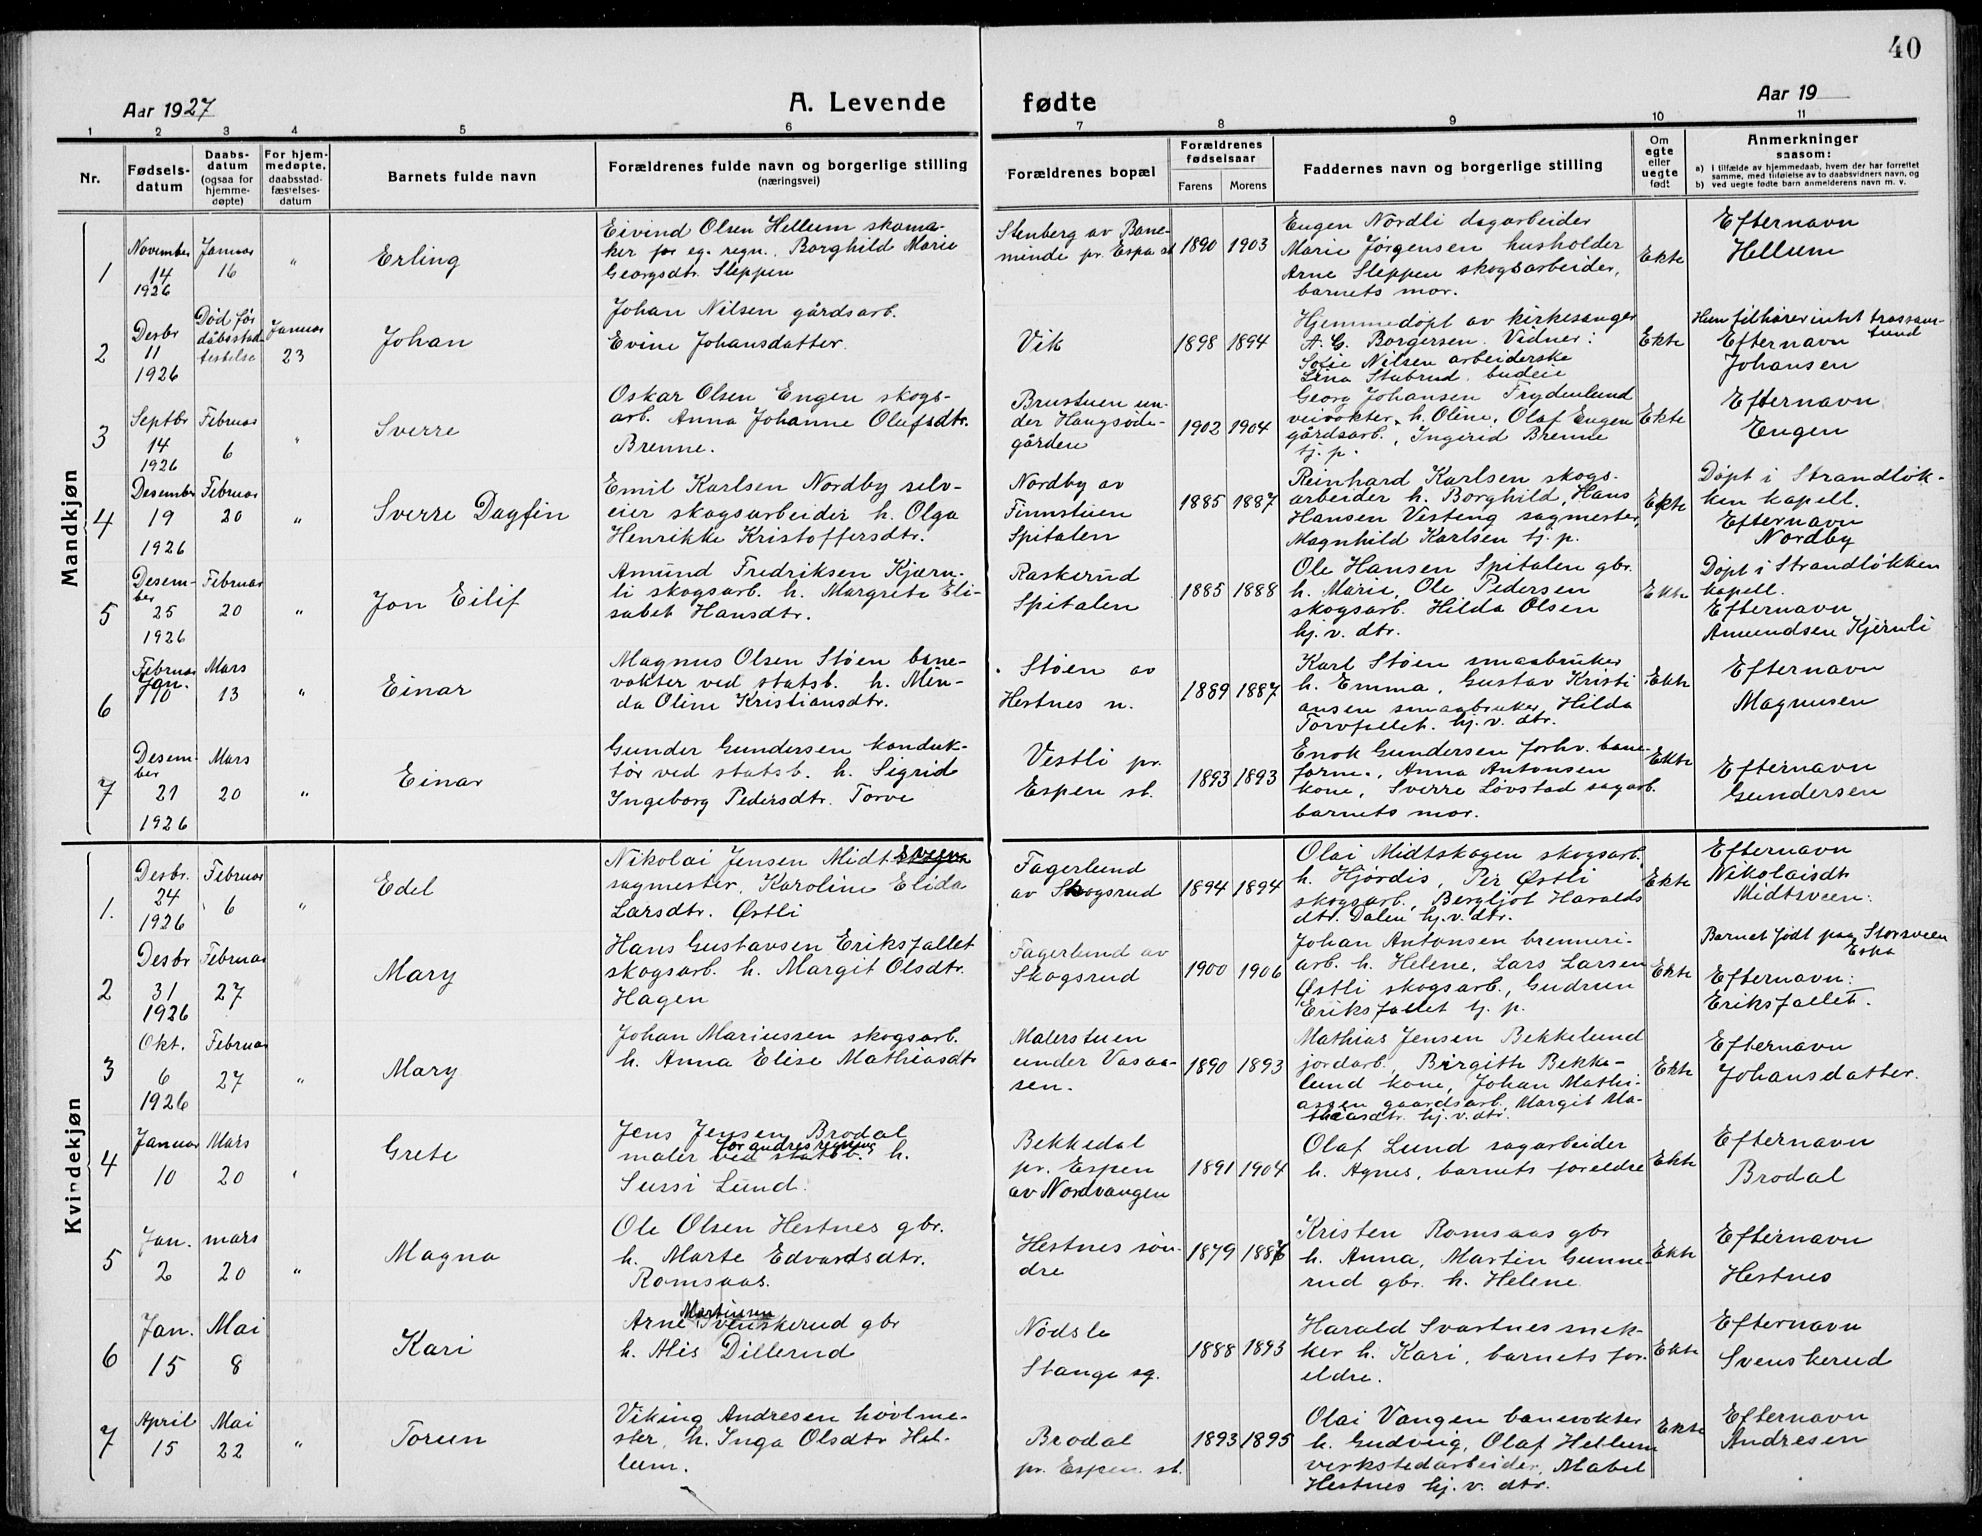 40
Aar 1927
A. Levende fødte
Aar 19
1 2 3 4 5 6 7 8 9 10 11
Nr.
Fødsels-
datum
Daabs-
datum
(ogsaa for
hjemme-
døpte)
For hjem-
medøpte,
daabsstad-
fæstelses-
datum
Barnets fulde navn
Forældrenes fulde navn og borgerlige stilling
(næringsvei)
Forældrenes bopæl
Forældrenes
fødselsaar
Farens Morens
Faddernes navn og borgerlige stilling
Om
egte
eller
uegte
født
Anmerkninger
saasom:
a) i tilfælde av hjemmedaab, hvem der har forrettet
samme, med tilføielse av to daabsvidners navn, og
b) ved uegte fødte barn anmelderens navn m. v.
Mandkjøn
1
November
14
1926
Januar
16
"
Erling
Eivind Olsen Hellum skoma-
ker for eg. regn. Borghild Marie
Georgsdtr. Sleppen
Stenberg av Bane-
minde pr. Espa st
1890 1903
Eugen Nordli dagarbeider
Marie Jørgensen husholder
Arne Sleppen skogsarbeider,
barnets mor.
Ekte
Efternavn
Hellum
2
Desbr
11
1926
Død før
dåbsstad-
festelse
Januar
23
Johan
Johan Nilsen gårdsarb.
Evine Johansdatter.
Vik
1898 1894
Hjemmedøpt av kirkesanger
A. G. Borgersen. Vidner:
Sofie Nilsen arbeiderske
Lina Stubrud. budeie
Ekte
Hun tilhører intet trossam-
fund
Efternavn
Johansen
3
Septbr
14
1926
Februar
6
"
Sverre
Oskar Olsen Engen skogs-
arb. Anna Johanne Olufsdtr.
Brenne.
Brustuen un-
der Haugsøde-
gården
1902 1904
Georg Johansen Frydenlund
veivokter, h. Oline, Olaf Engen
gårdsarb., Ingerid Brenne
tj. p.
Ekte
Efternavn
Engen
4
Desember
19
1926
Februar
20
"
Sverre Dagfin
Emil Karlsen Nordby selv-
eier skogsarbeider h. Olga
Henrikke Kristoffersdtr.
Nordby av
Finnstuen
Spitalen
1885 1887
Reinhard Karlsen skogs-
arbeider h. Borghild, Hans
Hansen Vesteng sagmester,
Magnhild Karlsen tj. p.
Ekte
Døpt i Strandløk-
ken kapell.
Efternavn
Nordby
5
Desem-
ber
25
1926
Februar
20
"
Jon Eilif
Amund Fredriksen Kjærn-
li skogsarb. h. Margrete Eli-
sabet Hansdtr.
Raskerud
Spitalen
1885 1888
Ole Hansen Spitalen gbr.
h. Marie, Ole Pedersen
skogsarb. Hilda Olsen
hj. v. dtr.
Ekte
Døpt i Strandløkken
kapell.
Efternavn
Amundsen Kjernli
6
Februar
Jan.
10
Mars
13
"
Einar
Magnus Olsen Støen bane-
vokter ved statsb. h. Min-
da Oline Kristiansdtr.
Støen av
Hestnes n.
1889 1887
Karl Støen smaabruker
h. Emma, Gustav Kristi
ansen smaabruker, Hilda
Torvfallet. hj. v. dtr.
Ekte
Efternavn
Magnusen
7
Desem-
ber
21
1926
Mars
20
"
Einar
Gunder Gundersen konduk-
tør ved statsb. h. Sigrid
Ingeborg Pedersdtr. Torve
Vestli pr.
Espen st.
1893 1893
Enok Gundersen forhv. bane-
form., Anna Antonsen
kone, Sverre Løvstad sagarb.
barnets mor.
Ekte
Efternavn
Gundersen
Kvindekjøn
1.
Desbr.
24
1926
Februar
6
"
Edel
Nikolai Jensen Midtsveen
sagmester. Karoline Elida
Larsdtr. Østli
Fagerlund
av Skogsrud
1894 1894
Olai Midtskogen skogsarb.
h. Hjørdis, Per Østli
skogsarb., Bergljot Haralds
dtr. Dalen hj. v. dtr.
Ekte
Efternavn
Nikolaisdtr
Midtsveen.
2
Desbr
31
1926
Februar
27
"
Mary
Hans Gustavsen Eriksfallet
skogsarb. h. Margit Olsdtr.
Hagen
Fagerlund av
Skogsrud
1900 1906
Johan Antonsen brenneri-
arb. h. Helene, Lars Larsen
Østli skogsarb., Gudrun
Eriksfallet tj. p.
Ekte
Barnet født paa Storsveen
Espa
Efternavn:
Eriksfallet.
3
Okt.
6
1926
Februar
27
"
Mary
Johan Mariussen skogsarb.
h. Anna Elise Mathiasdtr
Malerstuen
under Vasaa-
sen.
1890 1893
Mathias Jensen Bekkelund
jordarb., Birgitte Bekke-
lund kone, Johan Mathi-
assen gaardsarb. Margit Ma-
thiasdtr. hj. v. dtr.
Ekte
Efternavn
Johansdatter.
4
Januar
10
Mars
20
"
Grete
Jens Jensen Brodal
for andres regning
maler ved statsb. h.
Sussi Lund.
Bekkedal
pr. Espen
av Nordvangen
1891 1904
Olaf Lund sagarbeider
h. Agnes, barnets foreldre
Ekte
Efternavn
Brodal
5
Jan.
2
mars
20
"
Magna
Ole Olsen Hestnes gbr.
h. Marte Edvardsdtr.
Romsaas.
Hestnes søn-
dre
1879 1886
Kristen Romsaas gbr
h. Anna, Martin Gunne-
rud gbr. h. Helene
Ekte
Efternavn
Hestnes
6
Jan.
15
Mai
8
Kari
Martinsen
Arne Svenskerud gbr
h. Alis Dillerud
Nødsle
Stange sg.
1888 1893
Harald Svartnes snek-
ker h. Kari, barnets for-
eldre.
Ekte
Efternavn
Svenskerud
7
April
15
Mai
22
"
Torun
Viking Andresen høvlme-
ster, h. Inga Olsdtr Hel-
lum.
Brodal
pr. Espen. st.
1893 1895
Olai Vangen banevokter
h. Gudveig, Olaf Hellum
verkstedarbeider, Mabel
Hestnes hj. v. dtr.
Ekte
Efternavn
Andresen